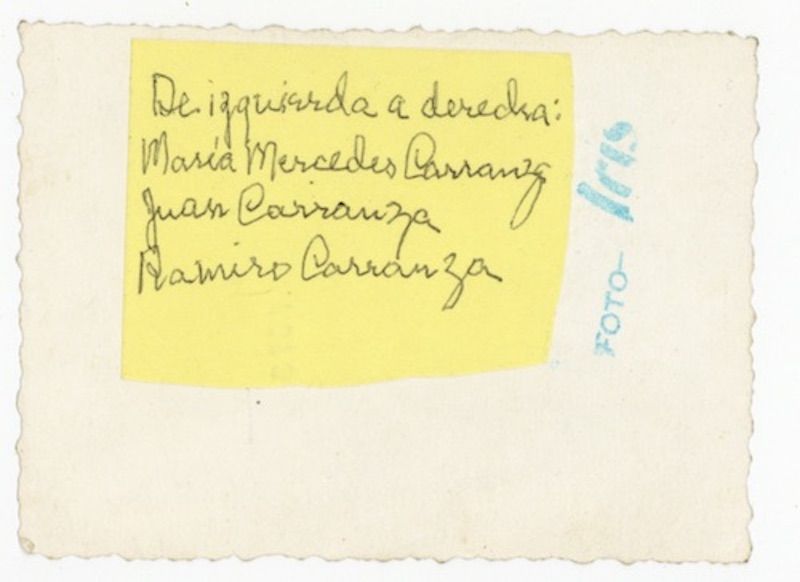 De izquierda a derecha:
María Mercedes Carranza
Juan Carranza
Ramiro Carranza
FOTO- Iris